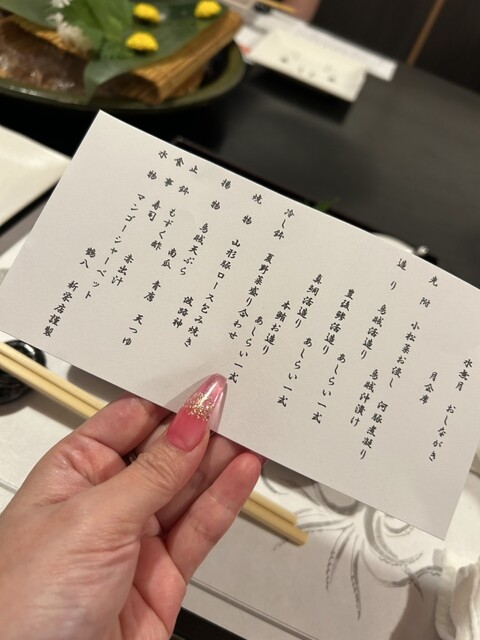 水無月 おしながき
月会席
先附 小松菜お浸し 河豚煮凝り
造り 烏賊活造り 烏賊沖漬け
豊後鯵活造り あしらい一式
真鯛活造り あしらい一式
本鮪お造り
冷し鉢 夏野菜盛り合わせ あしらい一式
焼物 山形豚ロース包み焼き
揚物 烏賊天ぷら 南瓜 青唐 天つゆ
止鉢 もずく酢
食事 寿司 赤出汁
水物 マンゴーシャーベット
鶴八 新栄居謹製